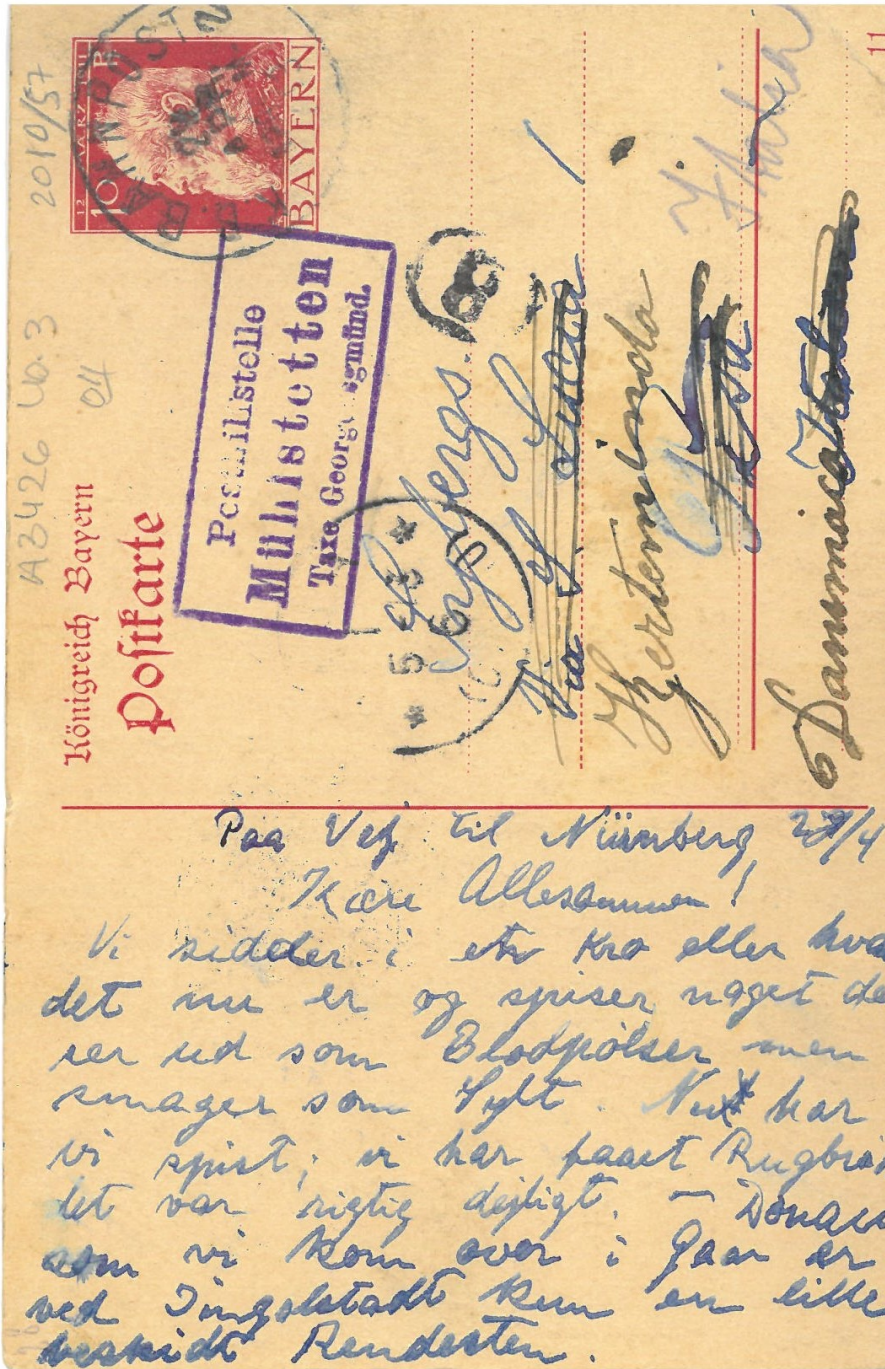 2010/57
A3426 Ub.3
04
Königreich Bayern
Postkarte
BAHNPOST
12 MÄRZ 1911
10
BAYERN
Posthilfstelle
Mühlstetten
Taxe Georgensgmünd.
Via
Kjerteminde
Danmark
Italien
11
Paa Vej til Nürnberg 29/4
Kære Allesammen!
Vi sidder i en Kro eller hva
det nu er og spiser noget de
ser ud som Blodpølser men
smager som Sylt. Nu har
vi spist; vi har faaet Rugbrø
det var rigtig dejligt. – Donau
som vi kom over i Gaar er
ved Ingolstadt kun en lille
beskidt Rendesten.